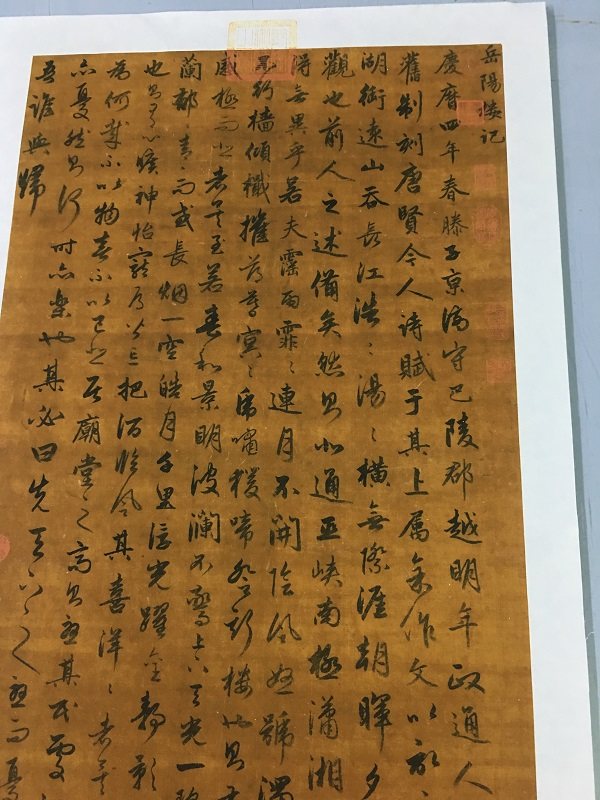 岳陽楼记
慶曆四年春滕子京謫守巴陵郡越明年政通人
舊制刻唐賢今人詩賦于其上屬余作文以記
湖銜遠山吞長江浩〻湯〻橫無際涯朝暉夕
觀也前人之述備矣然則北通巫峽南極瀟湘
得無異乎若夫霪雨霏〻連月不開陰風怒號濁
行檣傾檝摧薄暮冥〻虎嘯猿啼登斯樓也則有
感極而悲者矣至若春和景明波瀾不驚上下天光一碧
蘭郁青〻而或長烟一空皓月千里浮光躍金靜影
也則有心曠神怡寵辱皆忘把酒臨風其喜洋〻者矣
為何哉不以物喜不以己悲居廟堂之高則憂其民處
亦憂然則何時亦樂也其必曰先天下之憂而憂
吾誰與歸